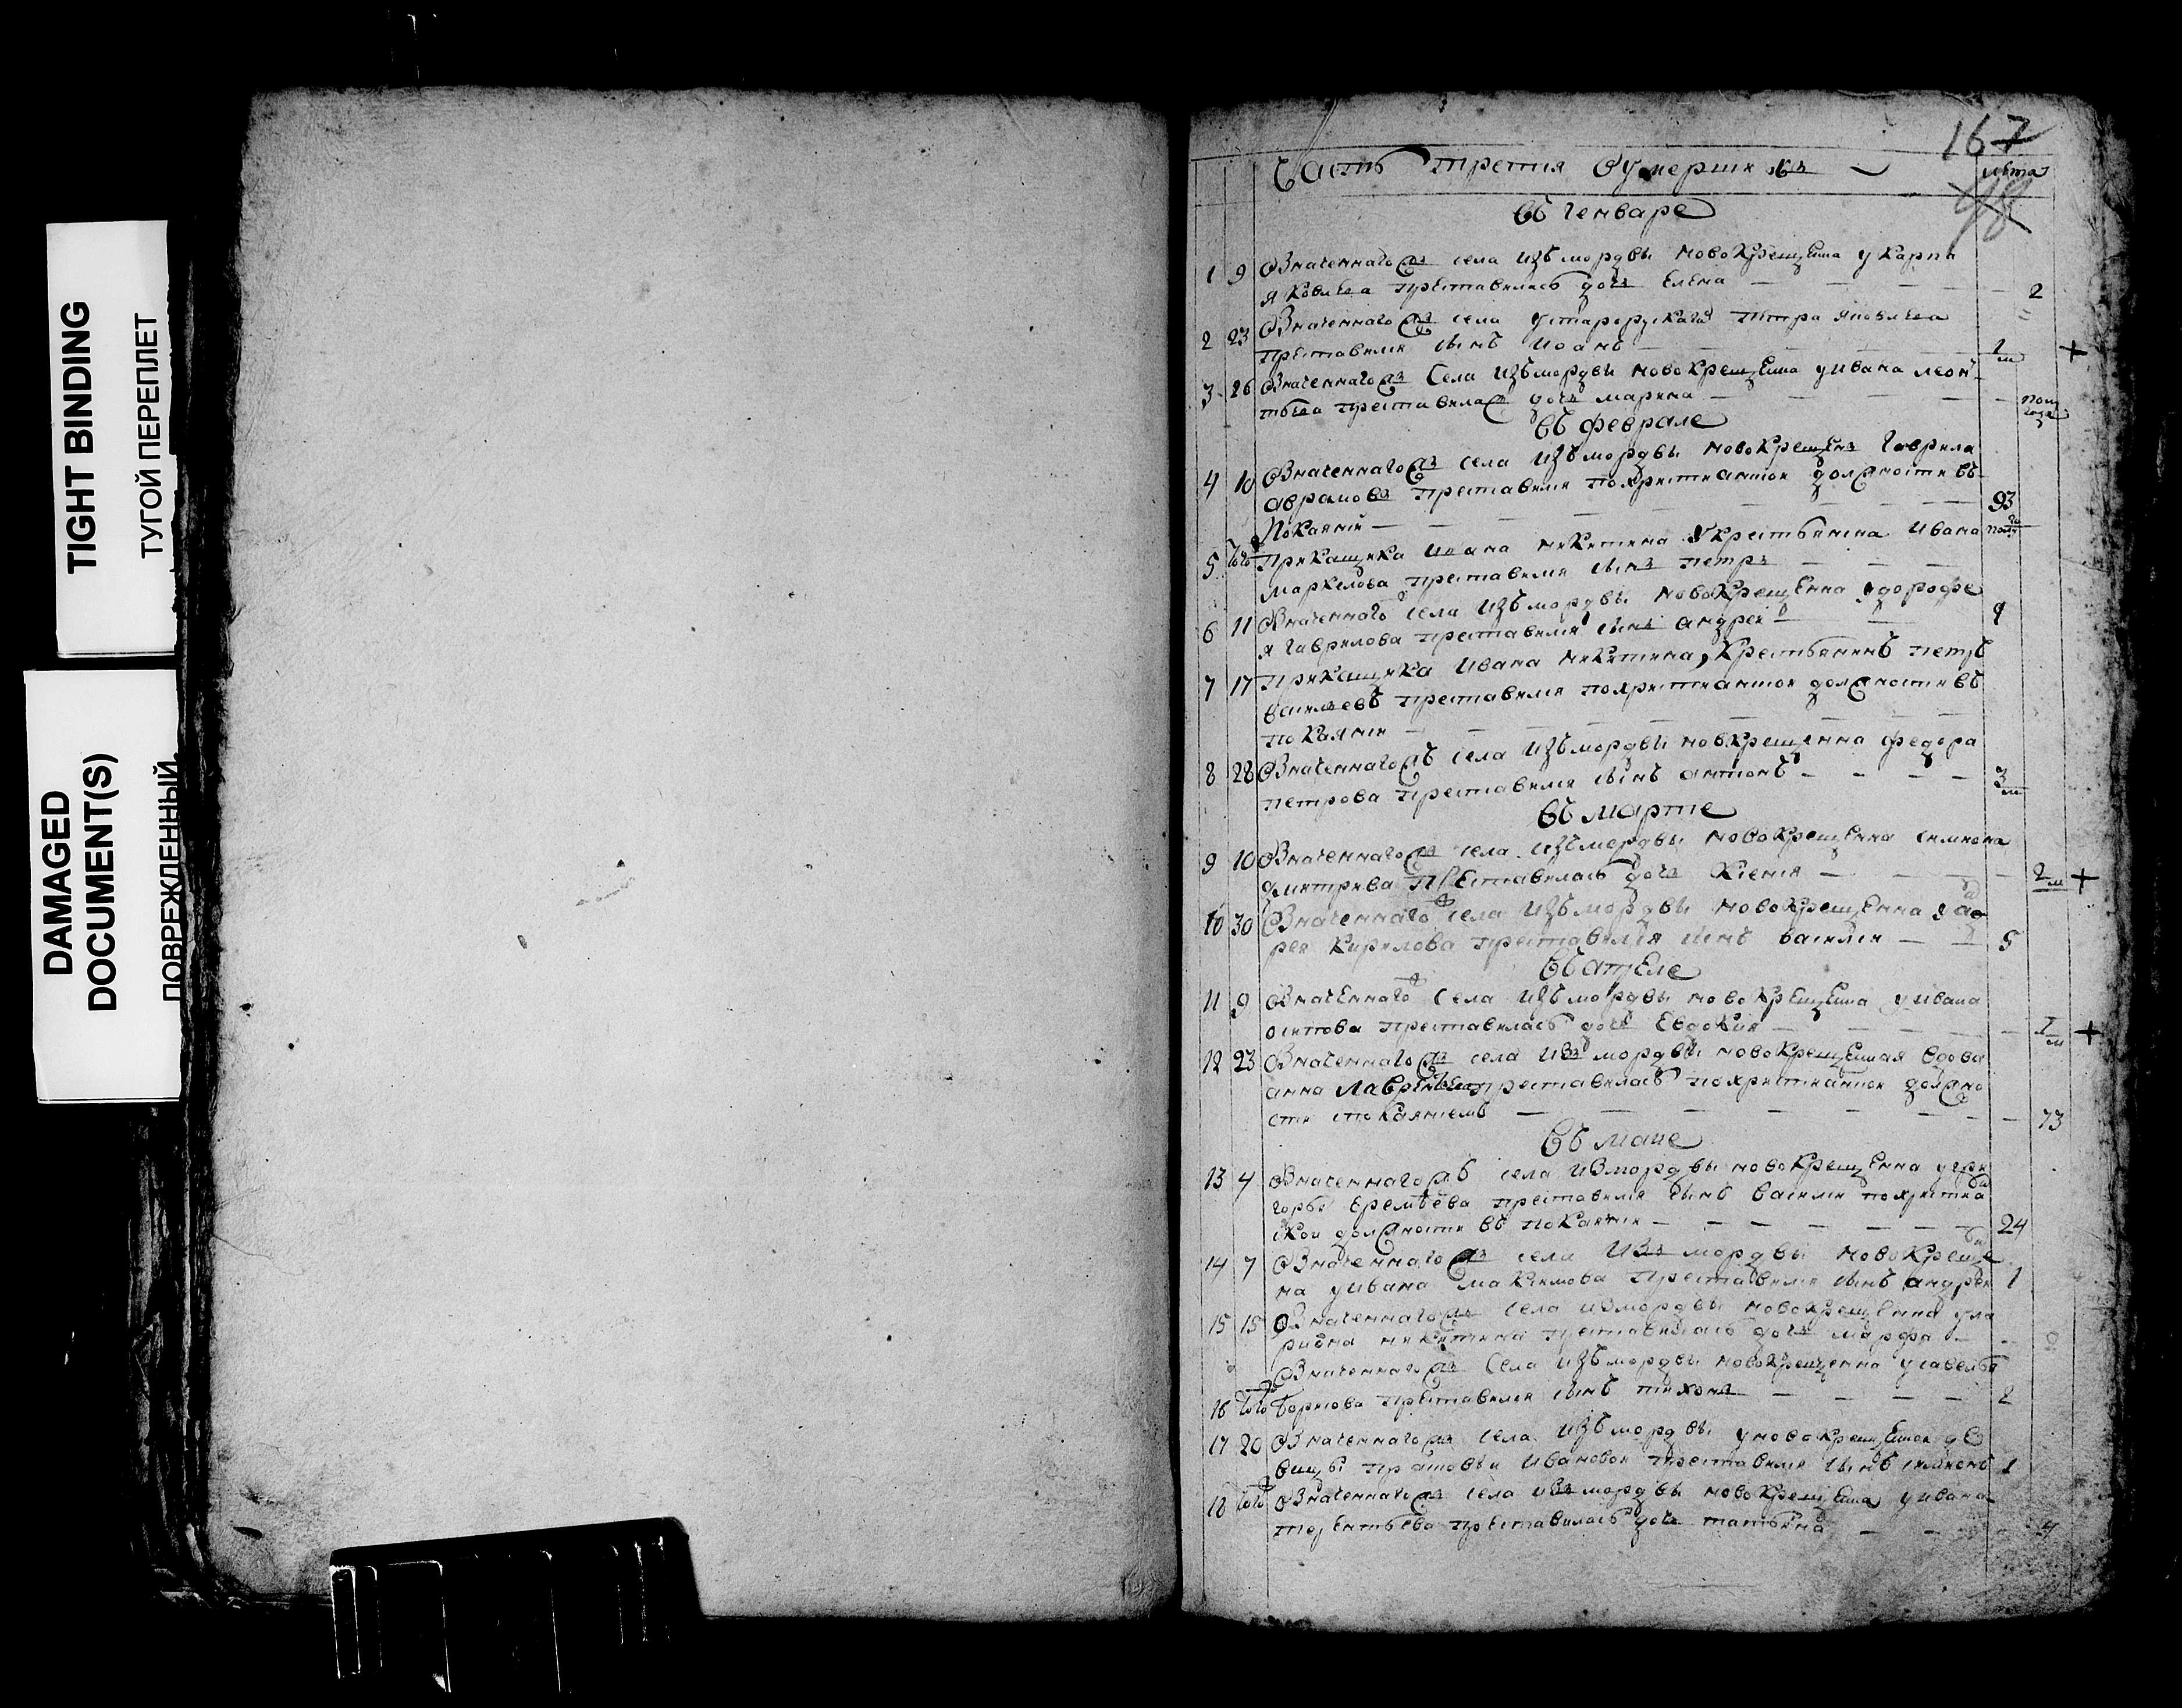 TIGHT BINDING
ТУГОЙ ПЕРЕПЛЕТ
DAMAGED
DOCUMENT(S)
ПОВРЕЖДЕННЫЙ
167
Часть третия Оумершихъ
лѣта
въ генваре
1 9 Означеннаго села изъ мордвы новокрещена у карпа
яковлева преставилась дочь Елена 2
2 23 Означеннаго села Петра яковлева
преставился сынъ иоанъ 1 м
3 26 Означеннаго Села изъ мордвы новокрещена у ивана леон
тьева преставилась дочь марина пол года
въ феврале
4 10 Означеннаго села изъ мордвы новокрещенъ гаврила
аврамовъ преставился похристианской должности въ
Покаянии 93
5 того Прикащика ивана никитина у крестьянина ивана
маркелова преставился сынъ петръ
6 11 Означенного села изъ мордвы новокрещенна у дорофе
я гаврилова преставился сынъ андрей
7 17 Прикащика ивана никитина, крестьянинъ петръ
васильевъ преставился похристианской должности въ
покаянии
8 28 Означеннаго села изъ мордвы новокрещенна федора
петрова преставился сынъ антонъ 3 м
въ марте
9 10 Означеннаго села изъ мордвы новокрещенна симиона
дмитрива преставилась дочь Ксения 2 м
10 30 Означенного села изъ мордвы новокрещенна
Кирилова преставился сынъ василии 5
въ апреле
11 9 Означенного села изъ мордвы новокрещена у ивана
осипова преставилась дочь Евдокия
12 23 Означеннаго села изъ мордвы новокрещеная вдова
анна преставилась похристианской должно
сти спокаяниемъ 73
въ маие
13 4 Означеннаго села измордвы новокрещенна у гри
горья Еремѣева преставился сынъ василии похристиа
ской должности въ покаянии 24
14 7 Означеннаго села изъ мордвы новокреще
на у ивана максимова преставился сынъ андреи 1
15 15 Означеннаго села измордвы новокрещенна у ла
риона никитина преставилась дочь марфа
Означеннаго Села изъ мордвы новокрещенна у савелья
16 того борисова преставился сынъ тихонъ 2
17 20 Означеннаго села изъ мордвы у новокрещеной дѣ
вицы Ивановой преставился сынъ симионъ 1
18 того Означеннаго села изъ мордвы новокрещена у ивана
терентьева преставилась дочь татьяна 4